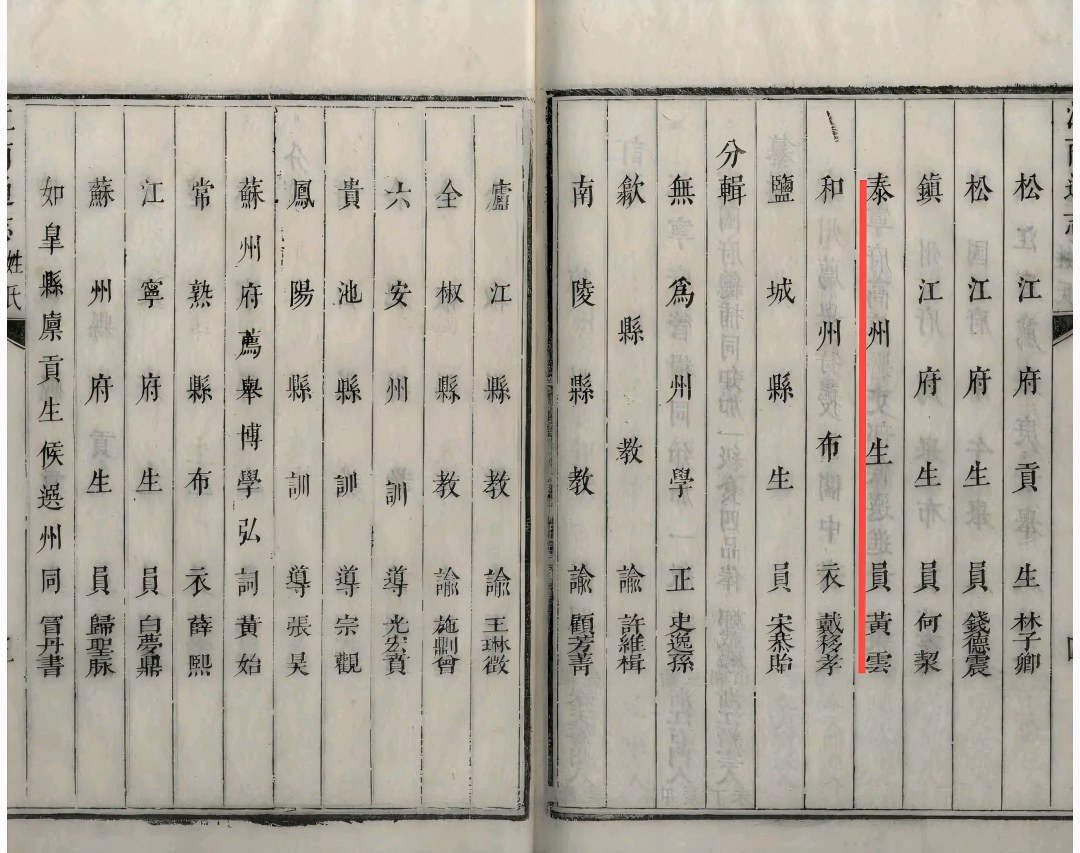 松江府貢生林子卿
松江府生員錢德震
鎮江府生員何絜
泰州生員黃雲
和州布衣戴移孝
鹽城縣生員宋恭貽
分輯
無為州學正史逸孫
歙縣教諭許維楫
南陵縣教諭顧芳菁
廬江縣教諭王琳徵
全椒縣教諭施剬曾
六安州訓導光宏賁
貴池縣訓導宗觀
鳳陽縣訓導張昊
蘇州府薦舉博學弘詞黃始
常熟縣布衣薛熙
江寧府生員白夢鼎
蘇州府生員歸聖脉
如臯縣廩貢生候選州同冒丹書
姓氏